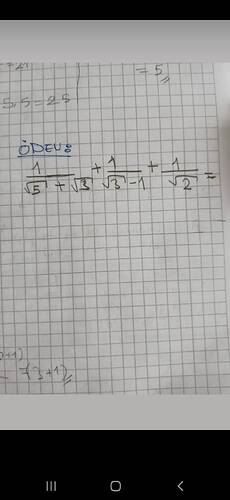 = 5
5.5 = 25
ÖDEV:
1/(√5 + √3) + 1/(√3 - 1) + 1/√2 =
7(3+1)